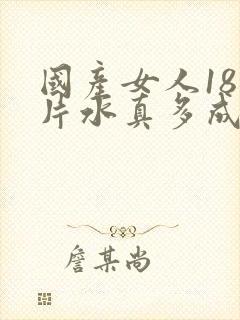 國產女人18
片水真多成
詹某尚